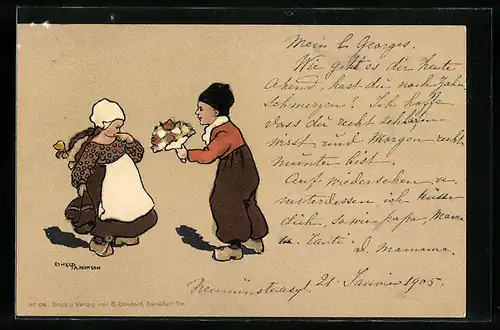 Mein l. Georges.
Wie geht es dir heute
Abend, hast du noch Zahn
schmerzen? Ich hoffe
dass du recht schlafen
wirst und Morgen recht
munter bist.
Auf wiedersehen u.
unterdessen ich küsse
dich, sowie Papa, Mama
Tante
d. Mamama.
21. Januar 1905.
ETHEL PARKINSON
No 134. Druck u. Verlag von B. Dondorf, Frankfurt a/M.